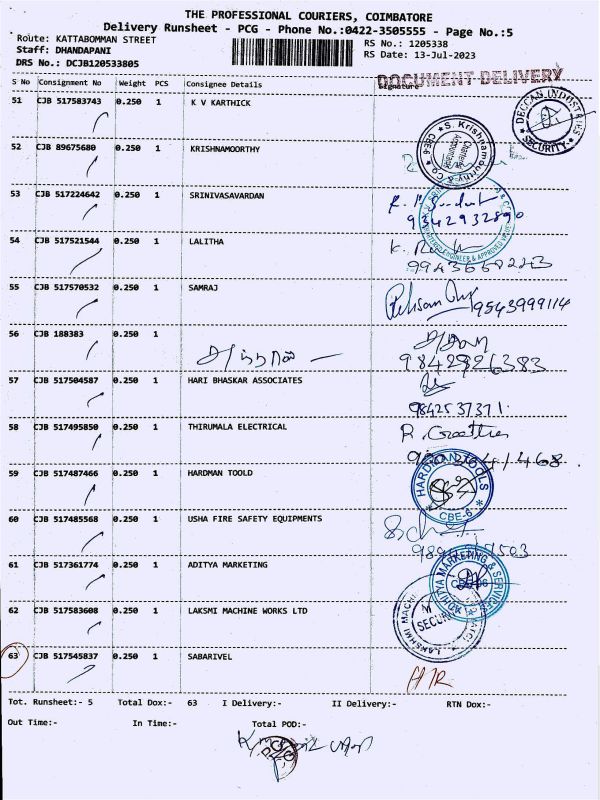 THE PROFESSIONAL COURIERS, COIMBATORE
Delivery Runsheet - PCG - Phone No.:0422-3505555 - Page No.:5
Route: KATTABOMMAN STREET
RS No.: 1205338
Staff: DHANDAPANI
RS Date: 13-Jul-2023
DRS No.: DCJB120533805
DOCUMENT DELIVERY
S No Consignment No Weight PCS Consignee Details Signature
51 CJB 517583743 0.250 1 K V KARTHICK
DECCAN INDUSTRIES SECURITY
52 CJB 89675680 0.250 1 KRISHNAMOORTHY
S. Krishnamurthy & Co Chartered Accountant CBE-6
53 CJB 517224642 0.250 1 SRINIVASAVARDAN
9342932890
54 CJB 517521544 0.250 1 LALITHA
ENGINEER & APPROVED
55 CJB 517570532 0.250 1 SAMRAJ
9543999114
56 CJB 188383 0.250 1
9842926383
57 CJB 517504587 0.250 1 HARI BHASKAR ASSOCIATES
9842537371
58 CJB 517495850 0.250 1 THIRUMALA ELECTRICAL
59 CJB 517487466 0.250 1 HARDMAN TOOLD
HARDMAN TOOLS CBE-6
60 CJB 517485568 0.250 1 USHA FIRE SAFETY EQUIPMENTS
61 CJB 517361774 0.250 1 ADITYA MARKETING
ADITYA MARKETING & SERVICES
62 CJB 517583608 0.250 1 LAKSMI MACHINE WORKS LTD
LAKSHMI MACHINE SECURITY
63 CJB 517545837 0.250 1 SABARIVEL
Tot. Runsheet:- 5 Total Dox:- 63 I Delivery:- II Delivery:- RTN Dox:-
Out Time:- In Time:- Total POD:-